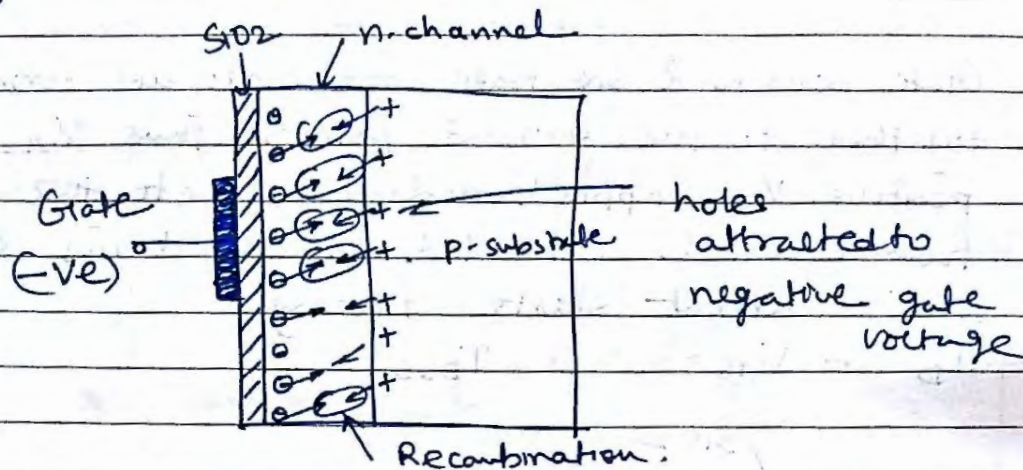 SiO2
n-channel
Gate
(-ve)
p-substrate
holes
attracted to
negative gate
voltage
Recombination.